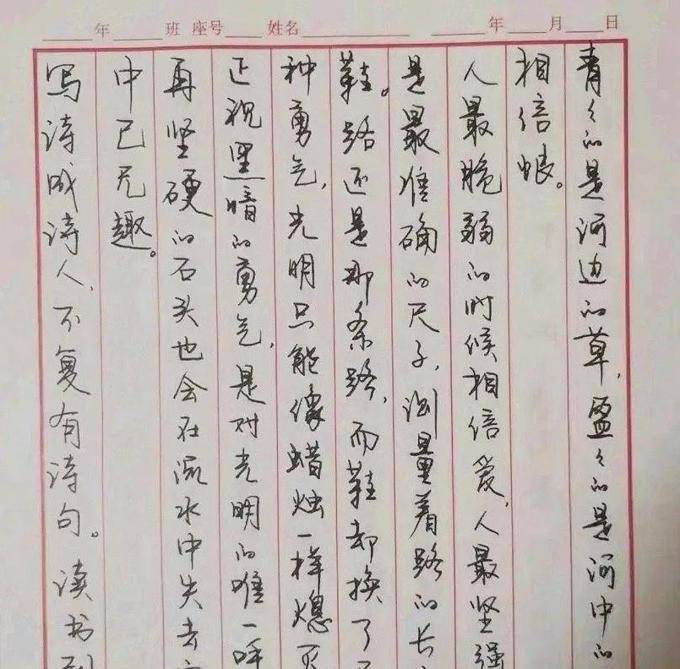 年 班 座号 姓名 年 月 日
青々的是河边的草，盈々的是河中的
相信眼。
人最脆弱的时候相信爱，人最坚强
是最准确的尺子，测量着路的长
鞋。路还是那条路，而鞋却换了
种勇气，光明只能像蜡烛一样熄灭
正视黑暗的勇气，是对光明的唯一呼
再坚硬的石头也会在流水中失去
中已无趣。
写诗成诗人，不复有诗句。读书到